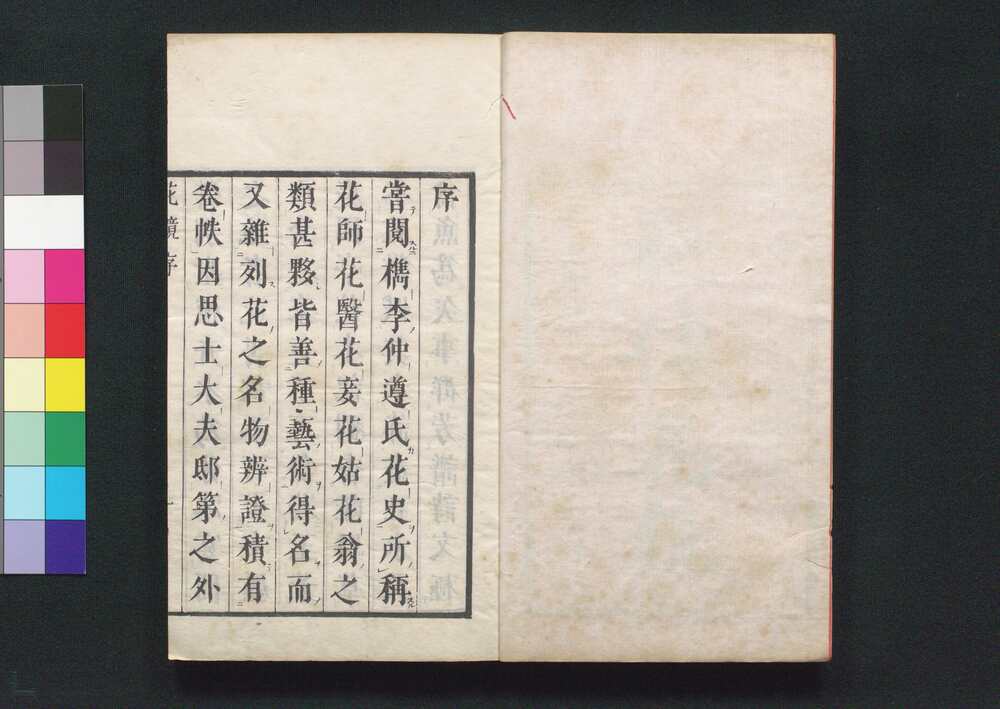 序
嘗閱檇李仲遵氏花史所稱
花師花醫花妾花姑花翁之
類甚夥皆善種藝術得名而
又雜列花之名物辨證積有
卷帙因思士大夫邸第之外
花鏡序